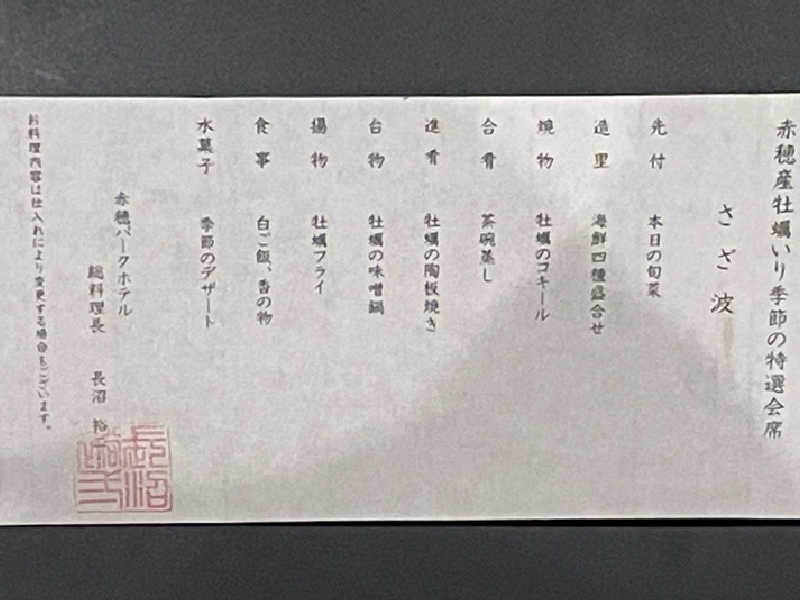 赤穂産牡蠣いり季節の特選会席
さざ波
先付 本日の旬菜
造里 海鮮四種盛合せ
焼物 牡蠣のコキール
合肴 茶碗蒸し
進肴 牡蠣の陶板焼き
台物 牡蠣の味噌鍋
揚物 牡蠣フライ
食事 白ご飯、香の物
水菓子 季節のデザート
赤穂パークホテル
総料理長 長沼 裕
お料理内容は仕入れにより変更する場合もございます。